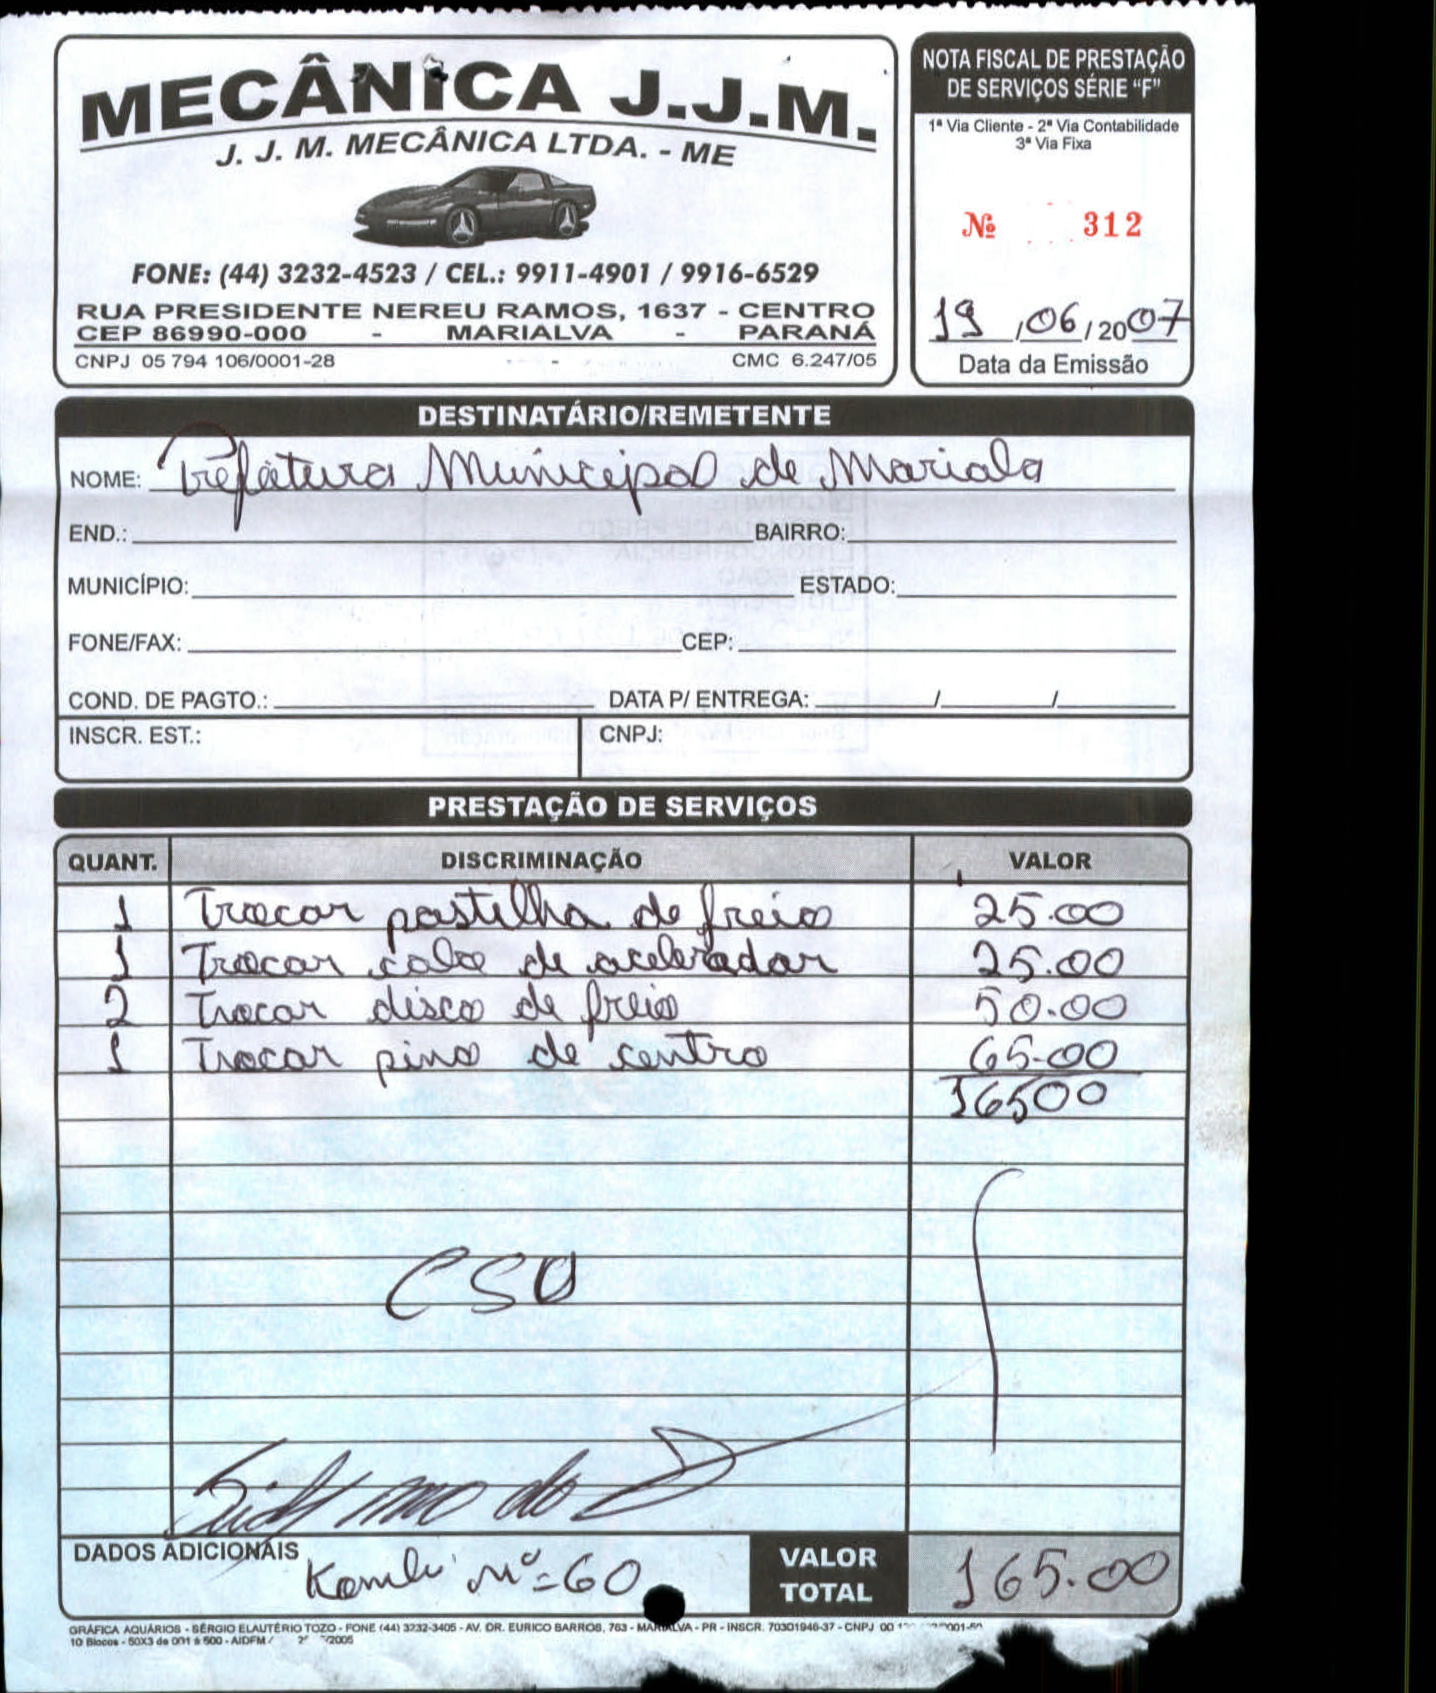 MECÂNICA J.J.M.
J. J. M. MECÂNICA LTDA. - ME
FONE: (44) 3232-4523 / CEL.: 9911-4901 / 9916-6529
RUA PRESIDENTE NEREU RAMOS, 1637 - CENTRO
CEP 86990-000 - MARIALVA - PARANÁ
CNPJ 05 794 106/0001-28 CMC 6.247/05
NOTA FISCAL DE PRESTAÇÃO
DE SERVIÇOS SÉRIE “F”
1ª Via Cliente - 2ª Via Contabilidade
3ª Via Fixa
Nº 312
19/06/2007
Data da Emissão
DESTINATÁRIO/REMETENTE
NOME: Prefeitura Municipal de Mariala
END.: BAIRRO:
MUNICÍPIO: ESTADO:
FONE/FAX: CEP:
COND. DE PAGTO.: DATA P/ ENTREGA: / /
INSCR. EST.: CNPJ:
PRESTAÇÃO DE SERVIÇOS
QUANT. DISCRIMINAÇÃO VALOR
1 Trocar pastilha de freio 25.00
1 Trocar cabo de acelerador 25.00
2 Trocar disco de freio 50.00
1 Trocar pino de centro 65.00
16500
DADOS ADICIONAIS Kombi nº = 60
VALOR TOTAL 165.00
GRÁFICA AQUÁRIOS - SÉRGIO ELAUTÉRIO TOZO - FONE (44) 3232-3405 - AV. DR. EURICO BARROS, 763 - MARIALVA - PR - INSCR. 70301946-37 - CNPJ 00
10 Blocos - 50X3 de 001 à 500 - AIDFM /2005